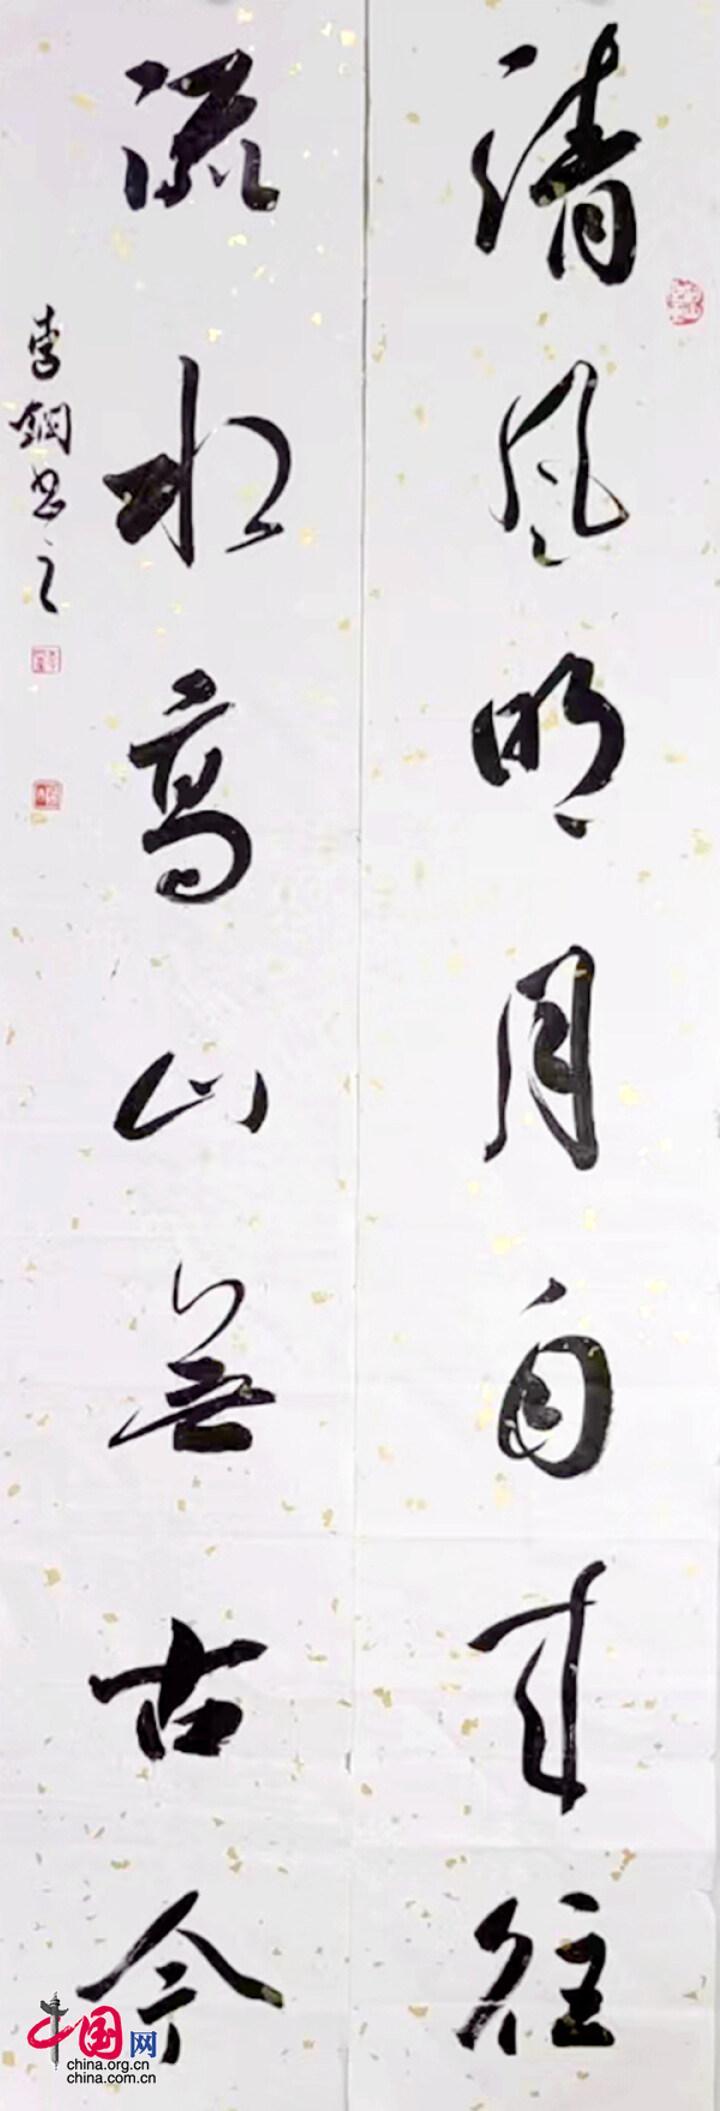 清风明月自来往
流水高山无古今
李钢书之
中国网
china.org.cn
china.com.cn